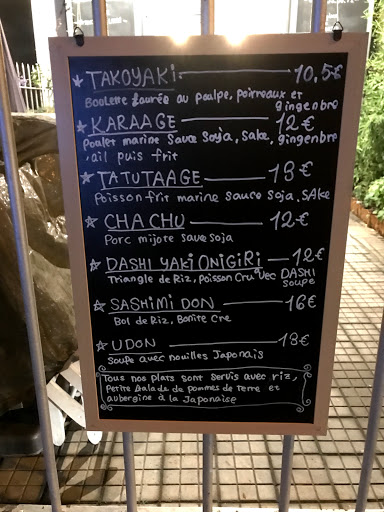 TAKOYAKi 10,5€
Boulette Laurée au poalpe, poirreaux et
gingenbre
KARAAGE 12€
Poulet marine sauce Soja, sake, gingenbre
,ail puis frit
TATUTAAGE 13€
Poisson frit marine sauce soja, SAke
CHA CHU 12€
Porc mijore sauce soja
DASHI YAKi ONIGIRI 12€
Triangle de Riz, Poisson Cru avec DASHI
SOUPE
SASHIMI DON 16€
Bol de Riz, Bonite Cre
UDON 13€
Soupe avec nouilles Japonais
Tous nos plats sont servis avec riz,
Petite Salade de pommes de terre et
aubergine à la Japonaise